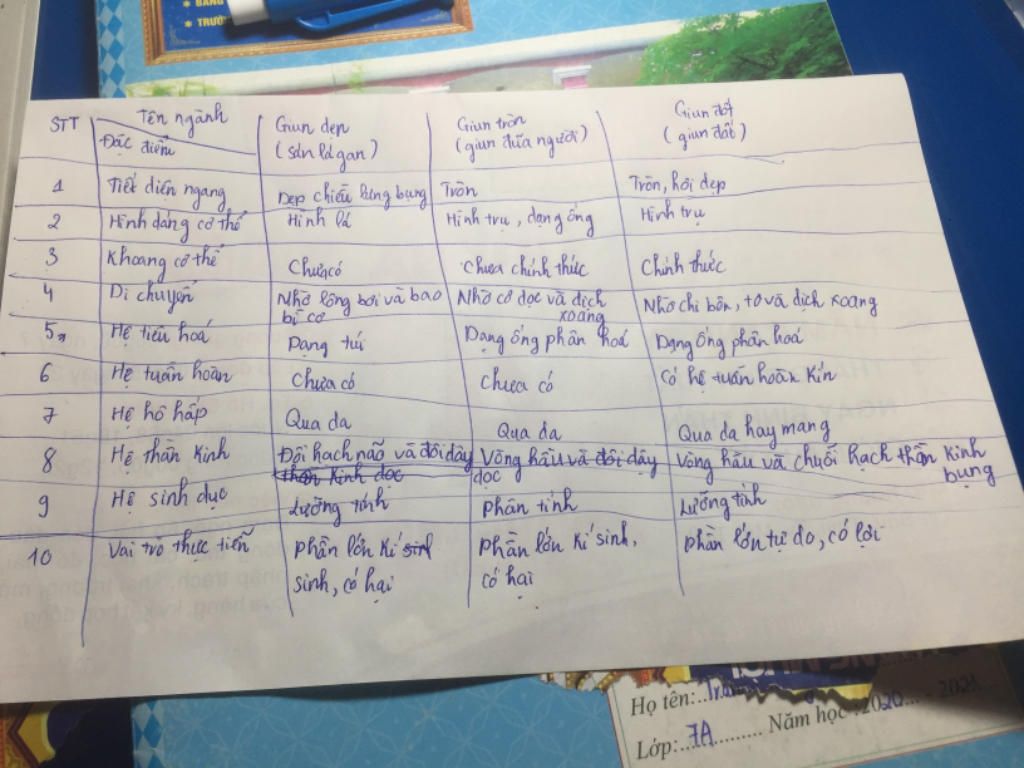 BẢNG
TRƯỜ
STT Tên ngành Giun dẹp Giun tròn Giun đốt
Đặc điểm (sán lá gan) (giun đũa người) (giun đất)
1 Tiết diện ngang Dẹp chiều lưng bụng Tròn Tròn, hơi dẹp
2 Hình dáng cơ thể Hình lá Hình trụ, dạng ống Hình trụ
3 Khoang cơ thể Chưa có Chưa chính thức Chính thức
4 Di chuyển Nhờ lông bơi và bao Nhờ cơ dọc và dịch Nhờ chi bên, tơ và dịch xoang
bì cơ xoang
5 Hệ tiêu hoá Dạng túi Dạng ống phân hoá Dạng ống phân hoá
6 Hệ tuần hoàn Chưa có Chưa có Có hệ tuần hoàn kín
7 Hệ hô hấp Qua da Qua da Qua da hay mang
8 Hệ thần kinh Đôi hạch não và đôi dây Vòng hầu và đôi dây Vòng hầu và chuỗi hạch thần kinh
thần kinh dọc dọc bụng
9 Hệ sinh dục Lưỡng tính Phân tính Lưỡng tính
10 Vai trò thực tiễn Phần lớn kí sinh Phần lớn kí sinh, Phần lớn tự do, có lợi
sinh, có hại có hại
Họ tên:
Lớp: 7A Năm học: 2020 - 2021